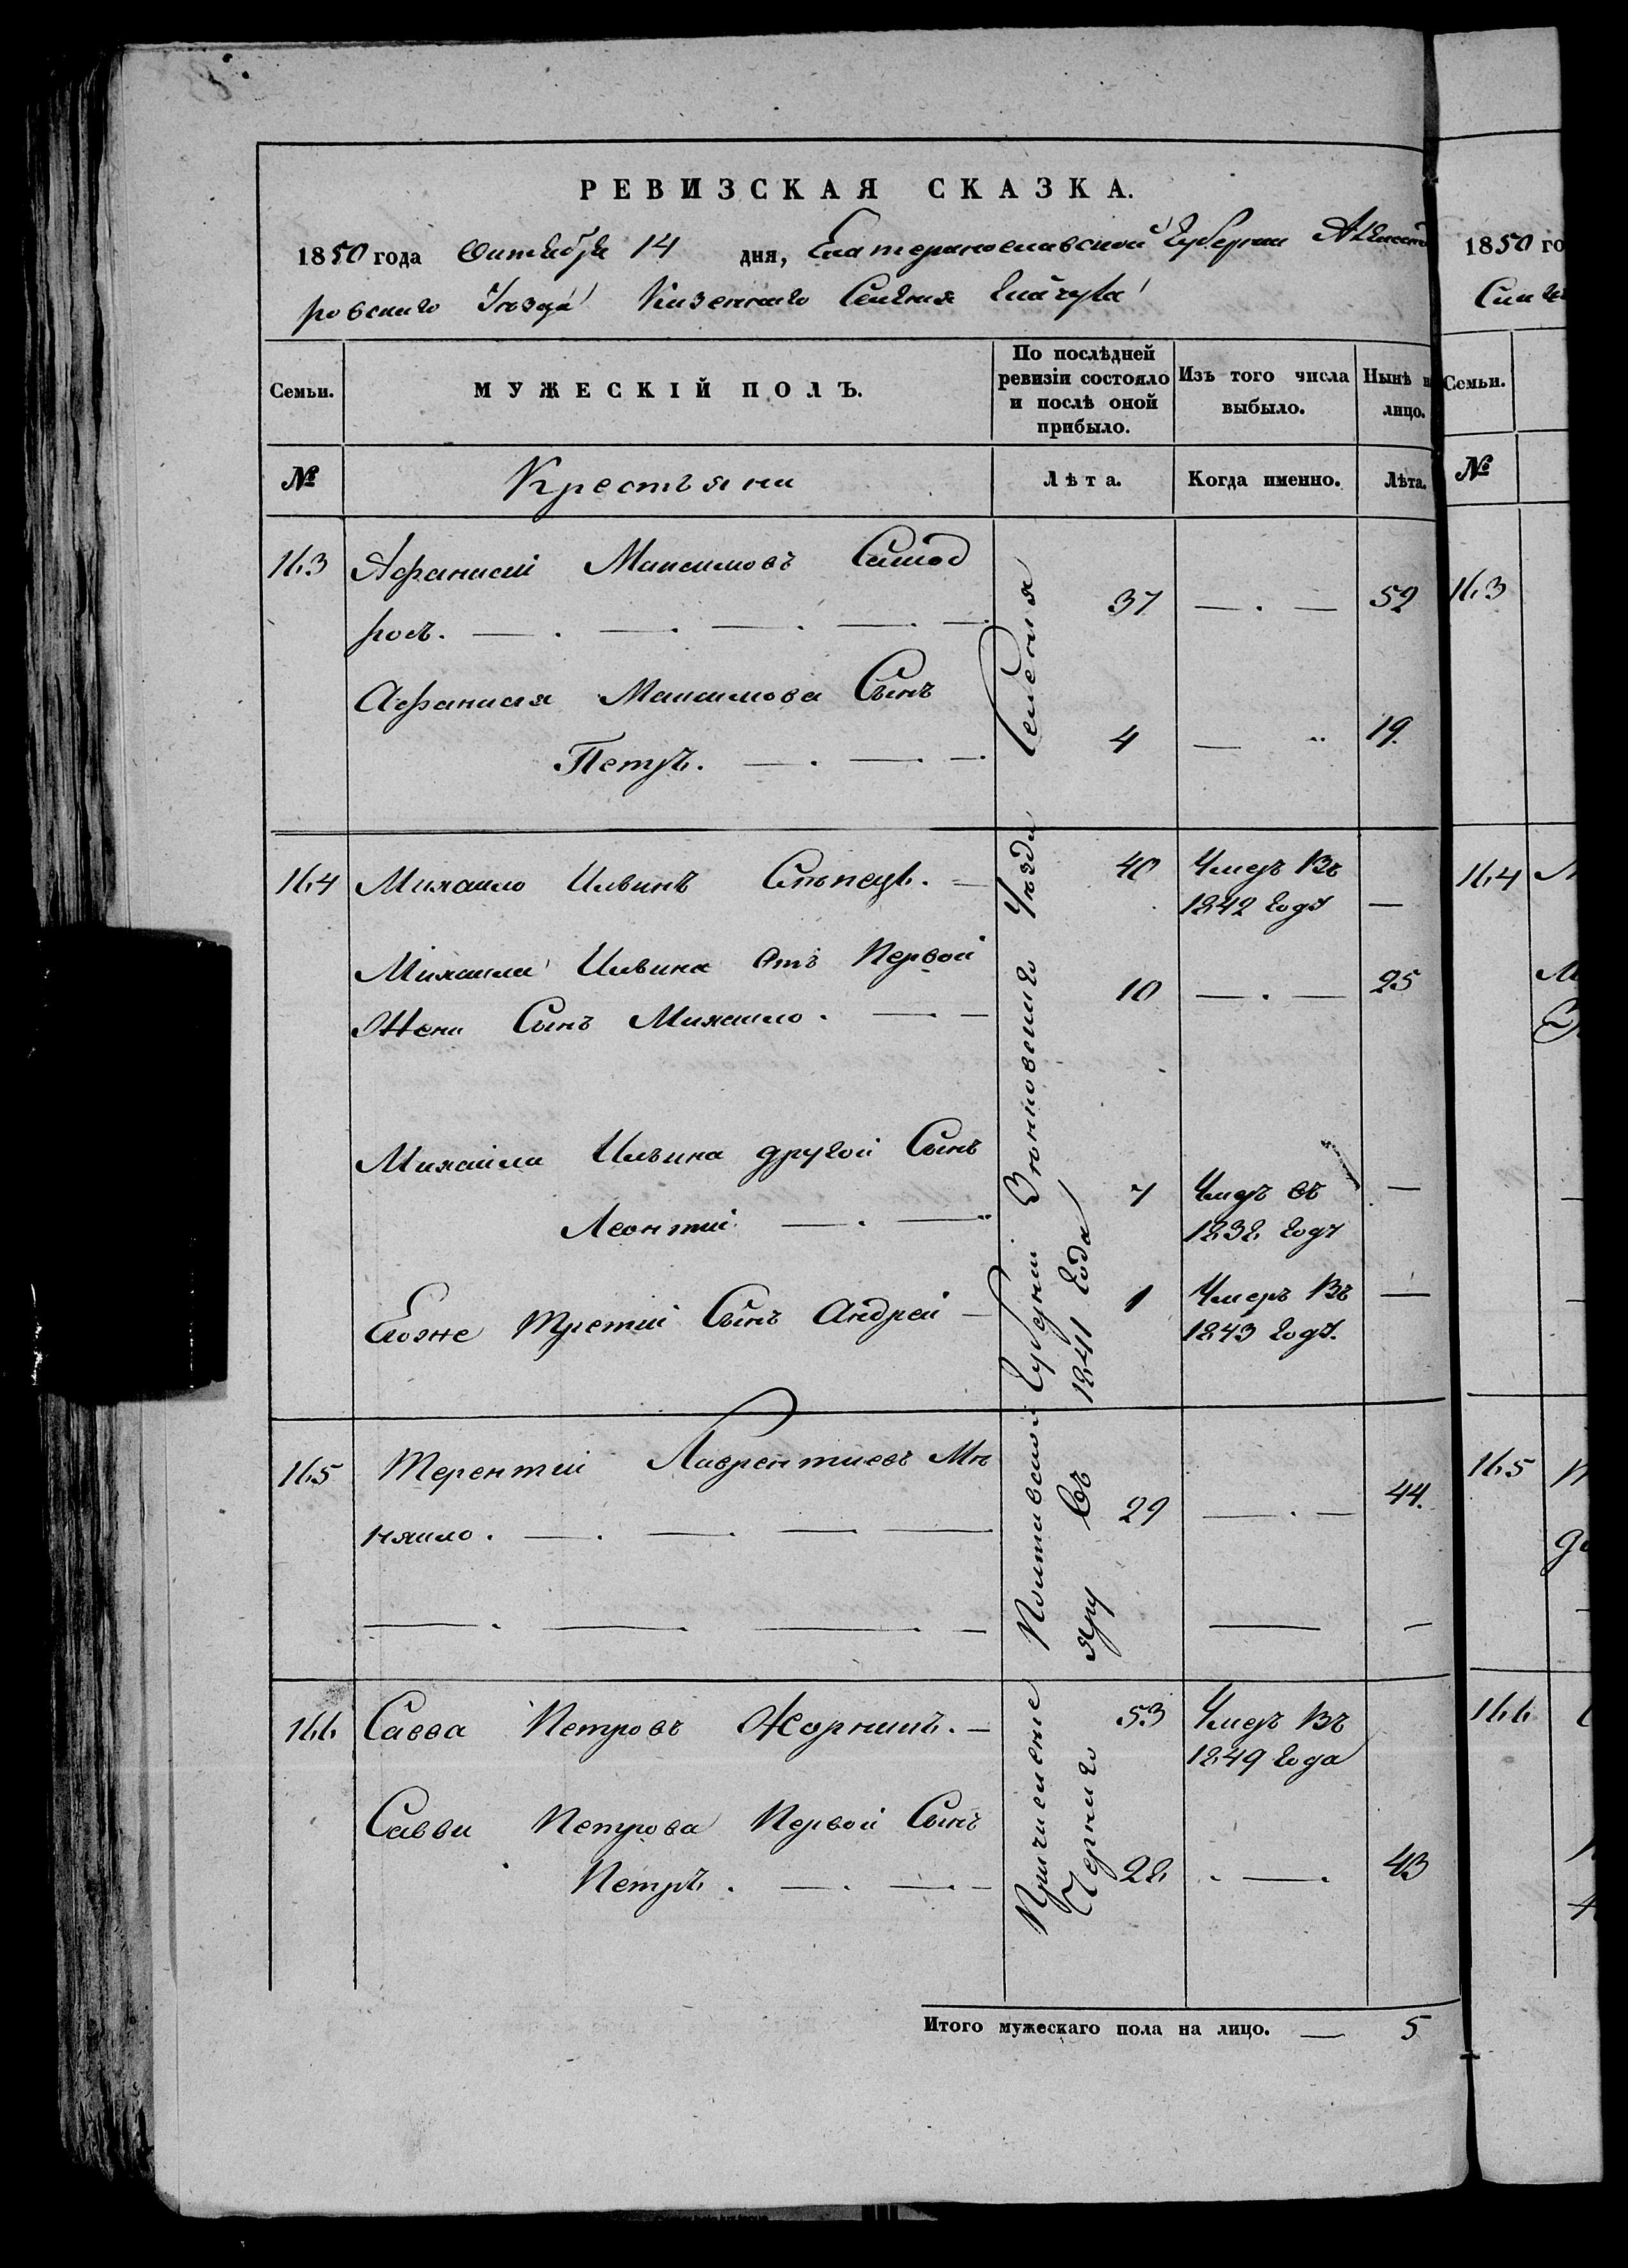 РЕВИЗСКАЯ СКАЗКА.
1850 года Октября 14 дня, Екатеринославской Губернии Александ
ровскаго Уезда Казеннаго Селения
Семьи.
МУЖЕСКІЙ ПОЛЪ.
По послѣдней
ревизіи состояло
и послѣ оной
прибыло.
Изъ того числа
выбыло.
Нынѣ н
лицо.
№
Крестьяни
Лѣта.
Когда именно.
Лѣта.
163 Афанасий Максимовъ Самод
ровъ. 37 52
Афанасия Максимова Сынъ
Петръ. 4 19.
164 Михаило Ильинъ Слѣпецъ. 40 Умеръ Въ
1842 году
Михаила Ильина отъ Первой 10 25
Жени Сынъ Михаило.
Михаила Ильина другой Сынъ
Леонтий 7 Умеръ въ
1838 году
Егоже Третий Сынъ Андрей 1 Умеръ Въ
1843 году.
165 Терентий Лаврентиевъ Мн
няйло. 29 44.
166 Савва Петровъ Жорникъ. 53 Умеръ Въ
1849 года
Савви Петрова Первой Сынъ
Петръ. 28 43
Причисление Полтавской Губернии Зѣньковскаго Уезда Селения
Чернаго яру Въ 1841 Года
Итого мужескаго пола на лицо. 5
1850 го
Семьи.
№
163
164
165
166